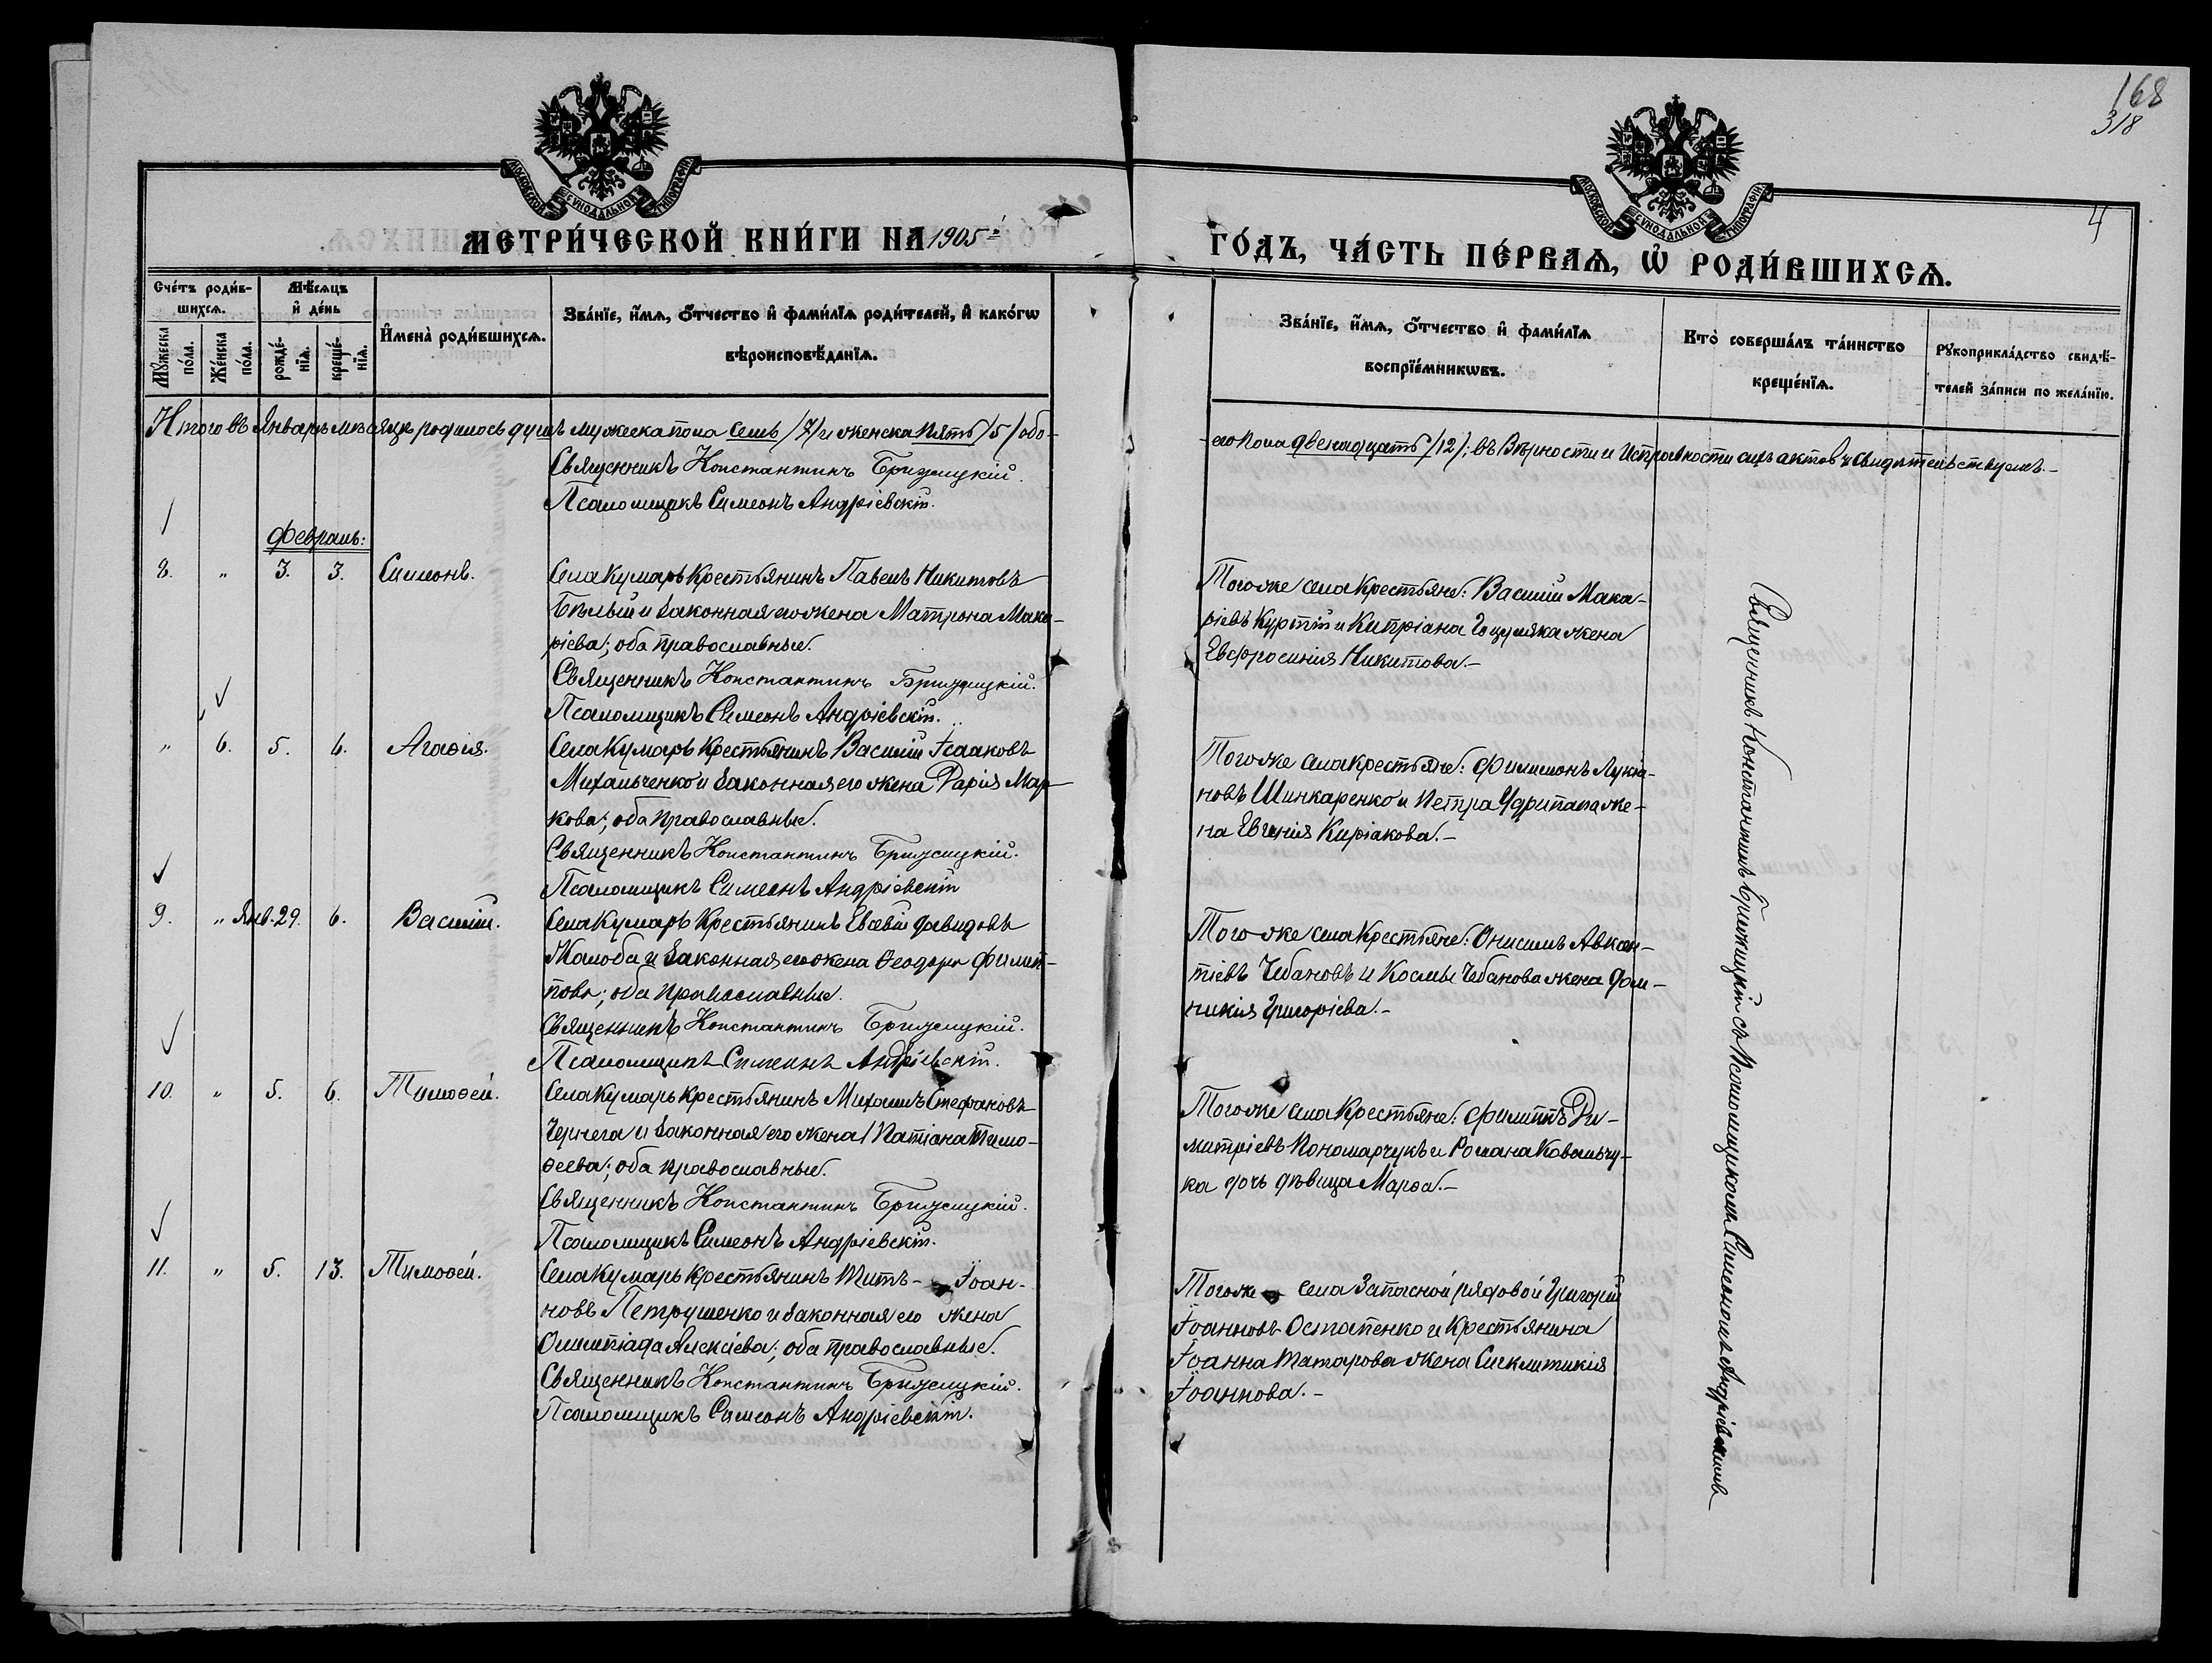 168
318
4
МОСКОВСКОЙ СѴНОДАЛЬНОЙ ТИПОГРАФІИ
МОСКОВСКОЙ СѴНОДАЛЬНОЙ ТИПОГРАФІИ
МЕТРИ́ЧЕСКОЙ КНИ́ГИ НА 1905й
ГО́ДЪ, ЧА́СТЬ ПЕ́РВАѦ, Ѡ҆ РОДИ́ВШИХСѦ.
Сче́тъ роди́в-
шихсѧ.
Мѣ́сѧцъ
и҆ де́нь
Мꙋ́жеска по́ла.
Же́нска по́ла.
рожде́-
нїѧ.
креще́-
нїѧ.
И҆мена̀ роди́вшихсѧ.
Зва́нїе, и҆́мѧ, ѻ҆́тчество и҆ фами́лїѧ роди́телей, и҆ како́гѡ
вѣроисповѣ́данїѧ.
Зва́нїе, и҆́мѧ, ѻ҆́тчество и҆ фами́лїѧ
воспрїе́мникѡвъ.
Кто̀ соверша́лъ та́инство
креще́нїѧ.
Рꙋкоприкла́дство свидѣ́-
телей за́писи по жела́нїю.
Итого въ Январѣ мѣсяцѣ родилось душъ мужеска пола семь /7/ и женска пять /5/ обо-
-его пола двенадцать /12/; въ Вѣрности и Исправности сихъ актовъ свидѣтельствуемъ.-
Священникъ Константинъ Брижицкій.
Псаломщикъ Симеонъ Андріевскій.
Февраль:
8. " 3. 3. Симеонъ.
Села Кумарь Крестьянинъ Павелъ Никитовъ
Бѣлый и законная его жена Матрона Мака-
ріева; оба православные.
Священникъ Константинъ Брижицкій.
Псаломщикъ Симеонъ Андріевскій.
Того же села Крестьяне: Василій Мака-
ріевъ Куртій и Кипріана Гоцуляка жена
Евфросинія Никитова.-
" 6. 5. 6. Агаѳія.
Села Кумарь Крестьянинъ Василій Ісааковъ
Михальченко и законная его жена Дарія Мар-
кова; оба Православные.
Священникъ Константинъ Брижицкій.
Псаломщикъ Симеонъ Андріевскій
Того же села крестьяне: Филимонъ Лукіа-
новъ Шинкаренко и Петра Чдрипала же-
на Евгенія Киріакова.-
9. " Янв. 29. 6. Василій.
Села Кумарь Крестьянинъ Евсевій Давидовъ
Жалоба и законная его жена Ѳеодора Филип-
пова; оба православные.
Священникъ Константинъ Брижицкій.
Псаломщикъ Симеонъ Андріевскій.
Того же села Крестьяне: Онисимъ Авксен-
тіевъ Чебановъ и Космы Чебанова жена Дом-
никія Григоріева.-
10. " 5. 6. Тимоѳей.
Села Кумарь Крестьянинъ Михаилъ Стефановъ
Чернега и законная его жена Татіана Тимо-
ѳеева; оба православные.
Священникъ Константинъ Брижицкій.
Псаломщикъ Симеонъ Андріевскій.
Того же села Крестьяне: Филиппъ Ди-
митріевъ Пономарчукъ и Романа Ковальчу-
ка дочь дѣвица Марѳа.-
11. " 5. 13. Тимоѳей.
Села Кумарь Крестьянинъ Титъ - Іоан-
новъ Петрушенко и законная его жена
Олимпіада Алексіева; оба православные.
Священникъ Константинъ Брижицкій.
Псаломщикъ Симеонъ Андріевскій.
Того же села Запасной рядовой Григорій
Іоанновъ Остапенко и Крестьянина
Іоанна Татарова жена Синклитикія
Іоаннова.-
Священникъ Константинъ Брижицкій съ Псаломщикомъ Симеономъ Андріевскимъ